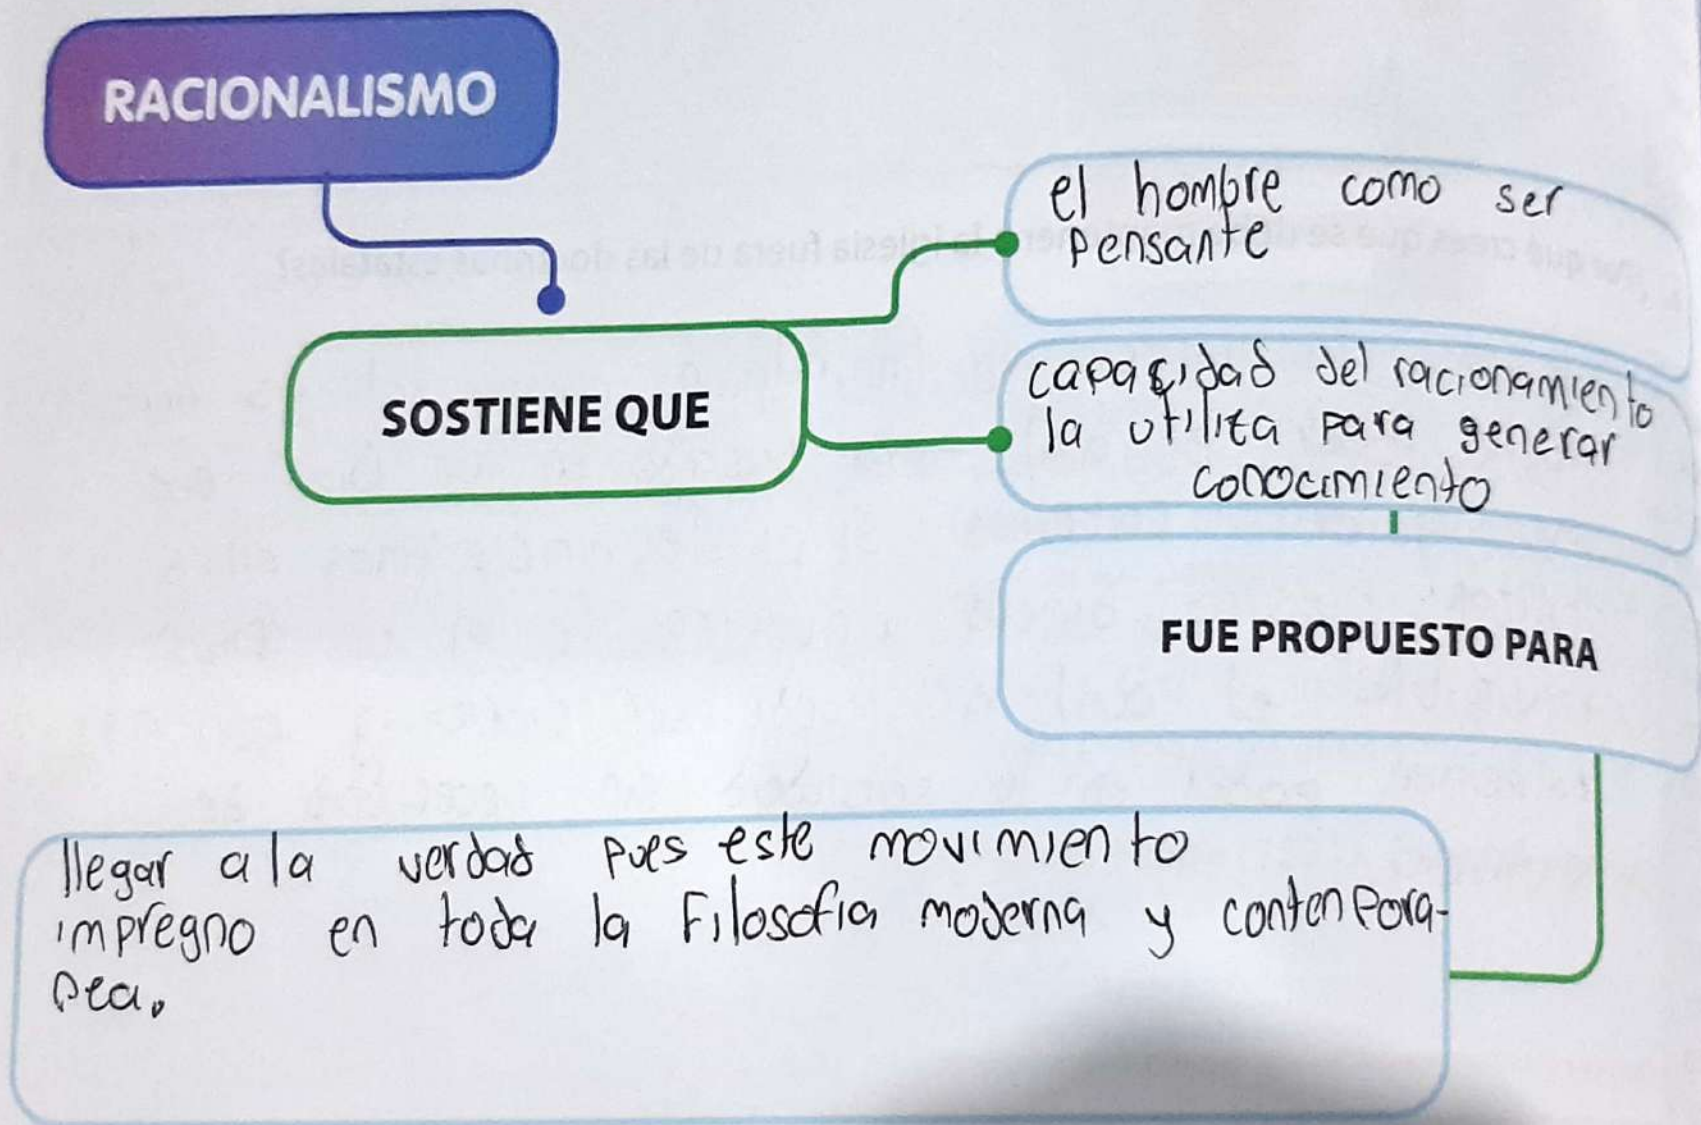 RACIONALISMO
el hombre como ser
pensante
SOSTIENE QUE
capacidad del racionamiento
la utiliza para generar
conocimiento
FUE PROPUESTO PARA
llegar a la verdad pues este movimiento
impregno en toda la Filosofia moderna y contenpora-
nea.